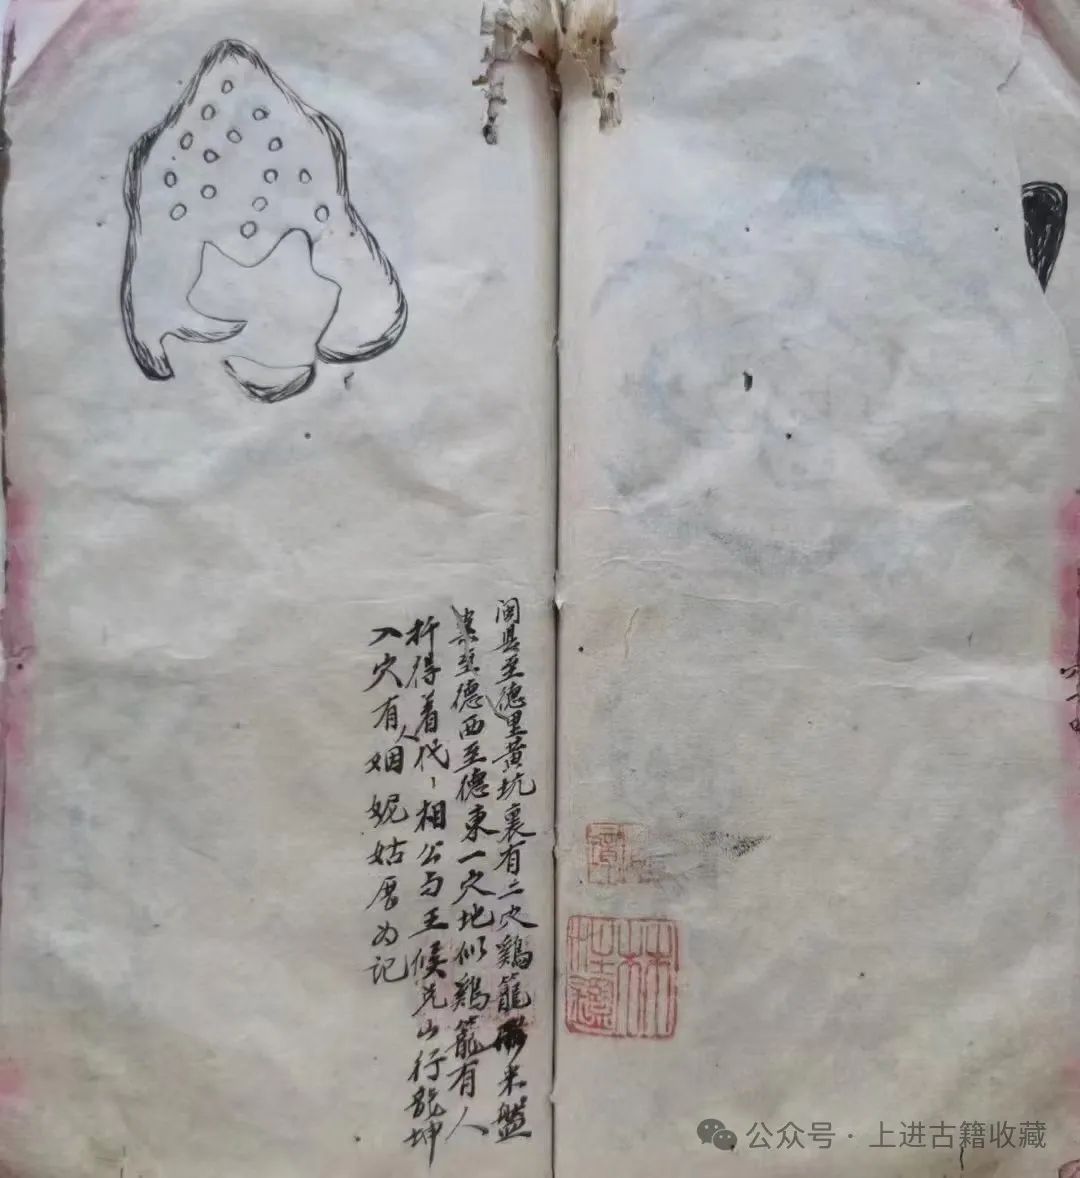 闽县至德里黄坑裏有二穴鷄籠米盤
至德西至德東一穴地似鷄籠有人
扦得着代、相公与王候艮山行龍坤
入穴有人姻妮姑厝为记
公众号 · 上进古籍收藏